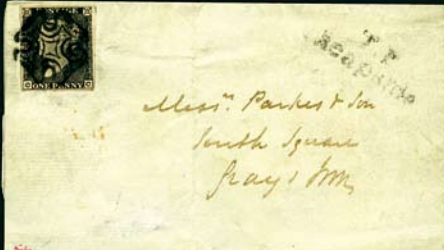 POSTAGE
ONE PENNY
T.P
Cheapside
Messrs. Parkes & Son
South Square
Grays Inn